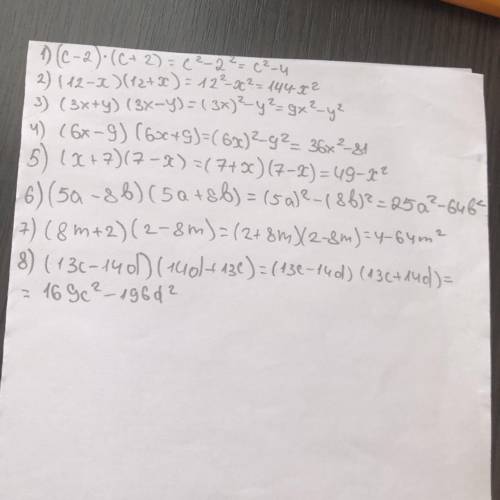 1) (c-2)·(c+2) = c²-2² = c²-4
2) (12-x)(12+x) = 12²-x² = 144-x²
3) (3x+y)(3x-y) = (3x)²-y² = 9x²-y²
4) (6x-9)(6x+9) = (6x)²-9² = 36x²-81
5) (x+7)(7-x) = (7+x)(7-x) = 49-x²
6) (5a-8b)(5a+8b) = (5a)²-(8b)² = 25a²-64b²
7) (8m+2)(2-8m) = (2+8m)(2-8m) = 4-64m²
8) (13c-14d)(14d+13c) = (13c-14d)(13c+14d) =
= 169c²-196d²